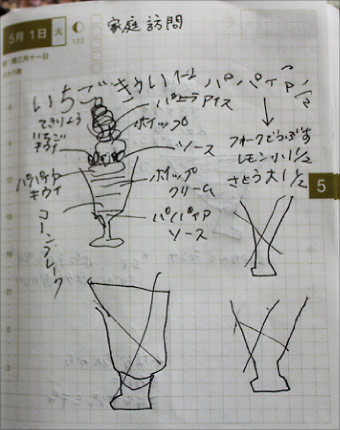 5月1日 火
122
家庭訪問
いちご きうい パパイア
てきりょう
いちご
キウイ
バニラアイス
ホイップ
ソース
パパイア
キウイ
ホイップ
クリーム
パパイア
ソース
コーンフレーク
フォークでつぶす
レモン小1 1/2
さとう大1 1/2
5